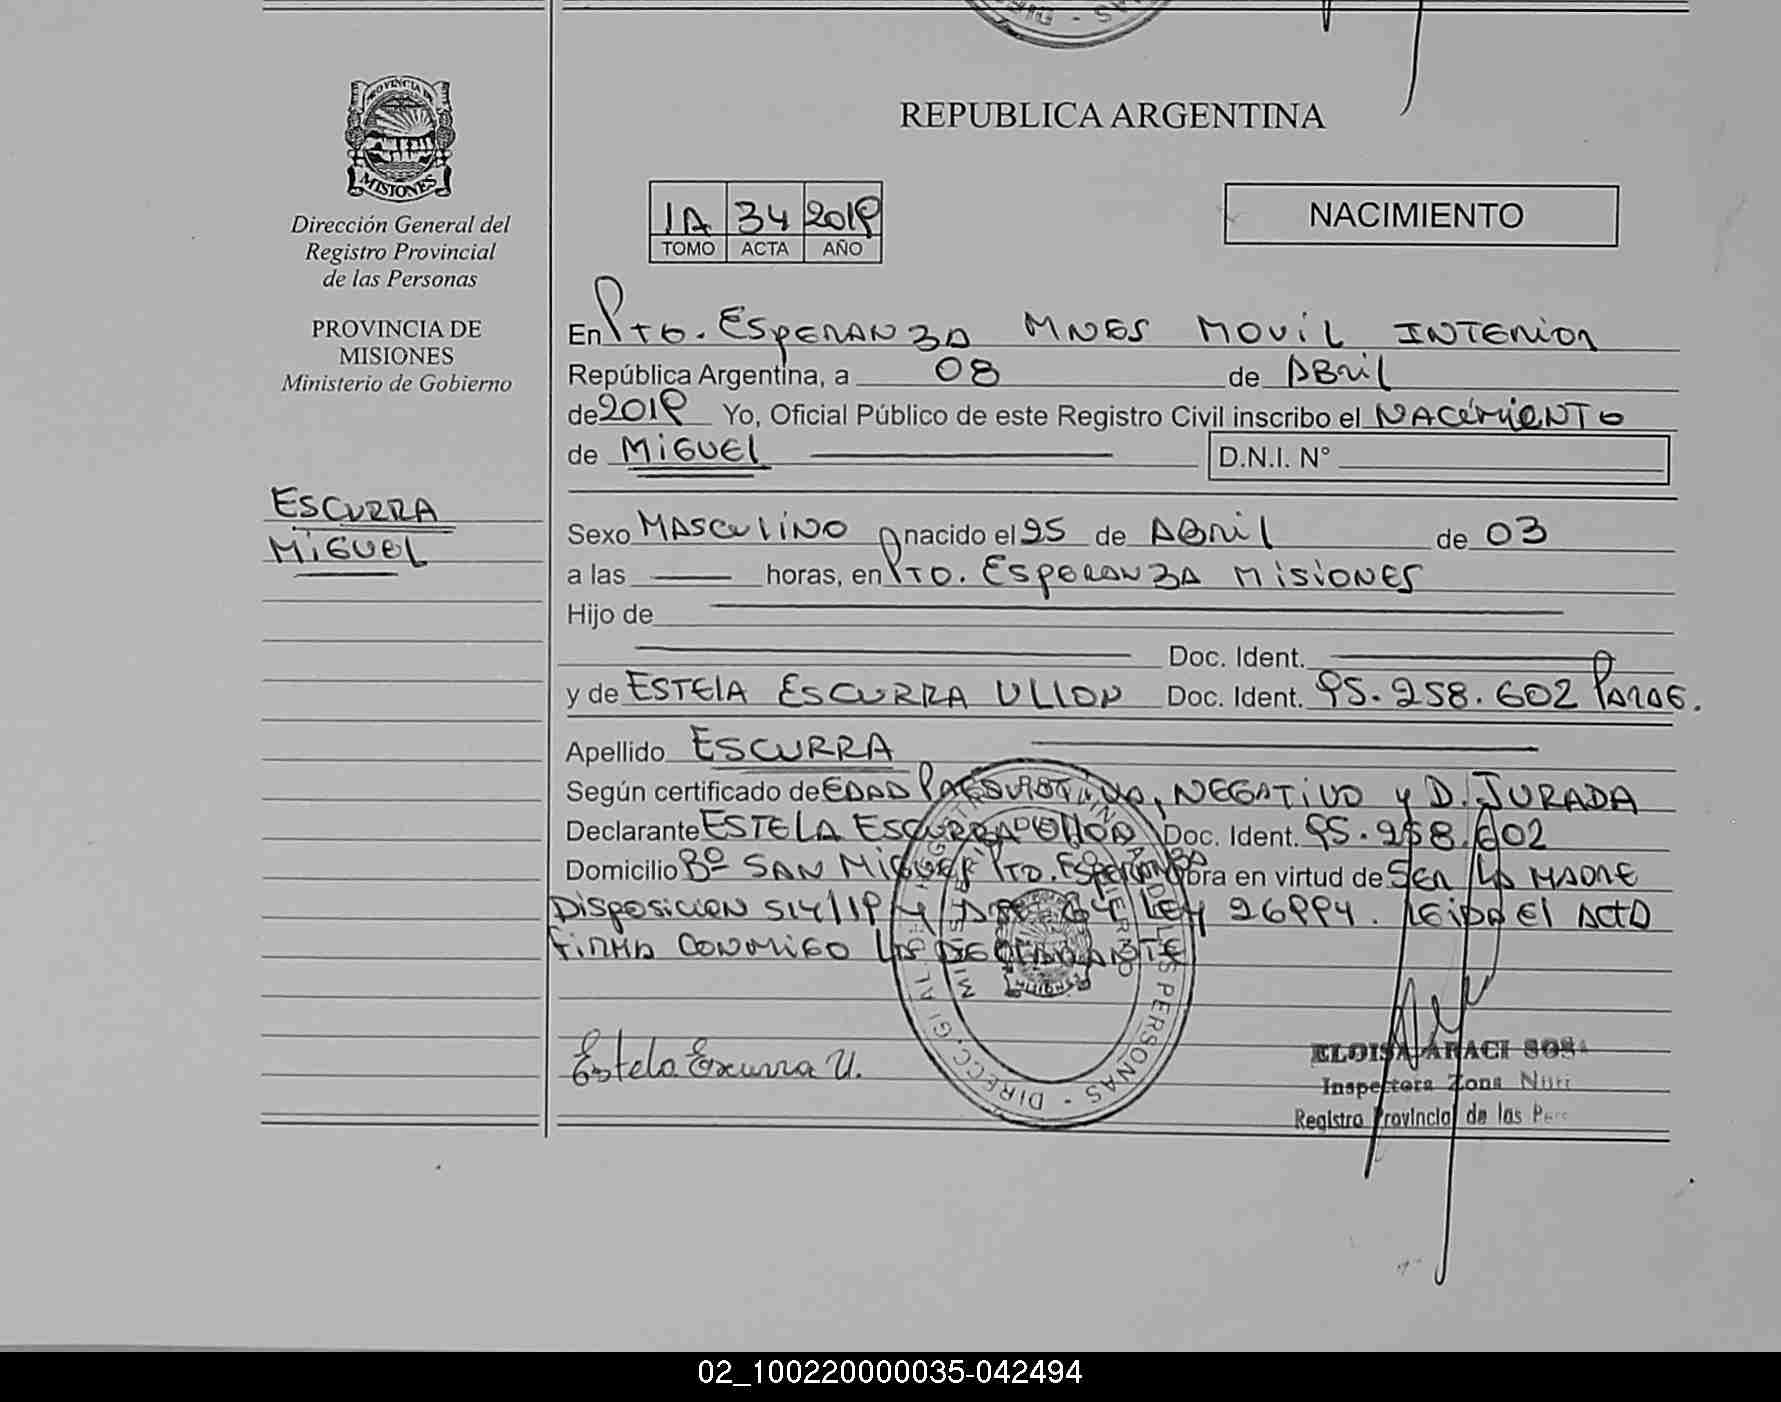 PROVINCIA DE
MISIONES
Dirección General del
Registro Provincial
de las Personas
PROVINCIA DE
MISIONES
Ministerio de Gobierno
ESCURRA
MIGUEL
REPUBLICA ARGENTINA
1A 34 2019
TOMO ACTA AÑO
NACIMIENTO
En Pto. ESPERANZA MNES MOVIL INTERIOR
República Argentina, a 08 de ABril
de 2019 Yo, Oficial Público de este Registro Civil inscribo el NACIMIENTO
de MIGUEL D.N.I. N°
Sexo MASCULINO nacido el 25 de ABril de 03
a las horas, en PTO. ESPERANZA MISIONES
Hijo de
Doc. Ident.
y de ESTElA ESCURRA Doc. Ident. 95.258.602 PARAG.
Apellido ESCURRA
Según certificado de EDAD PRESUNTIVA, NEGATIVO y D. JURADA
Declarante ESTELA ESCURRA Doc. Ident. 95.258.602
Domicilio Bº SAN MIGUEL PTO. ESPERANZA obra en virtud de SER LA MADRE
DISPOSICION 514/19 Y ART 64 LEY 26994. LEIDA El ACTA
FIRMA CONMIGO LA DECLARANTE
Estela Escurra U.
DIRECC. GRAL. PERSONAS
ELOISA ARACI SOSA
Inspectora Zona
Registro Provincial de las
02_100220000035-042494